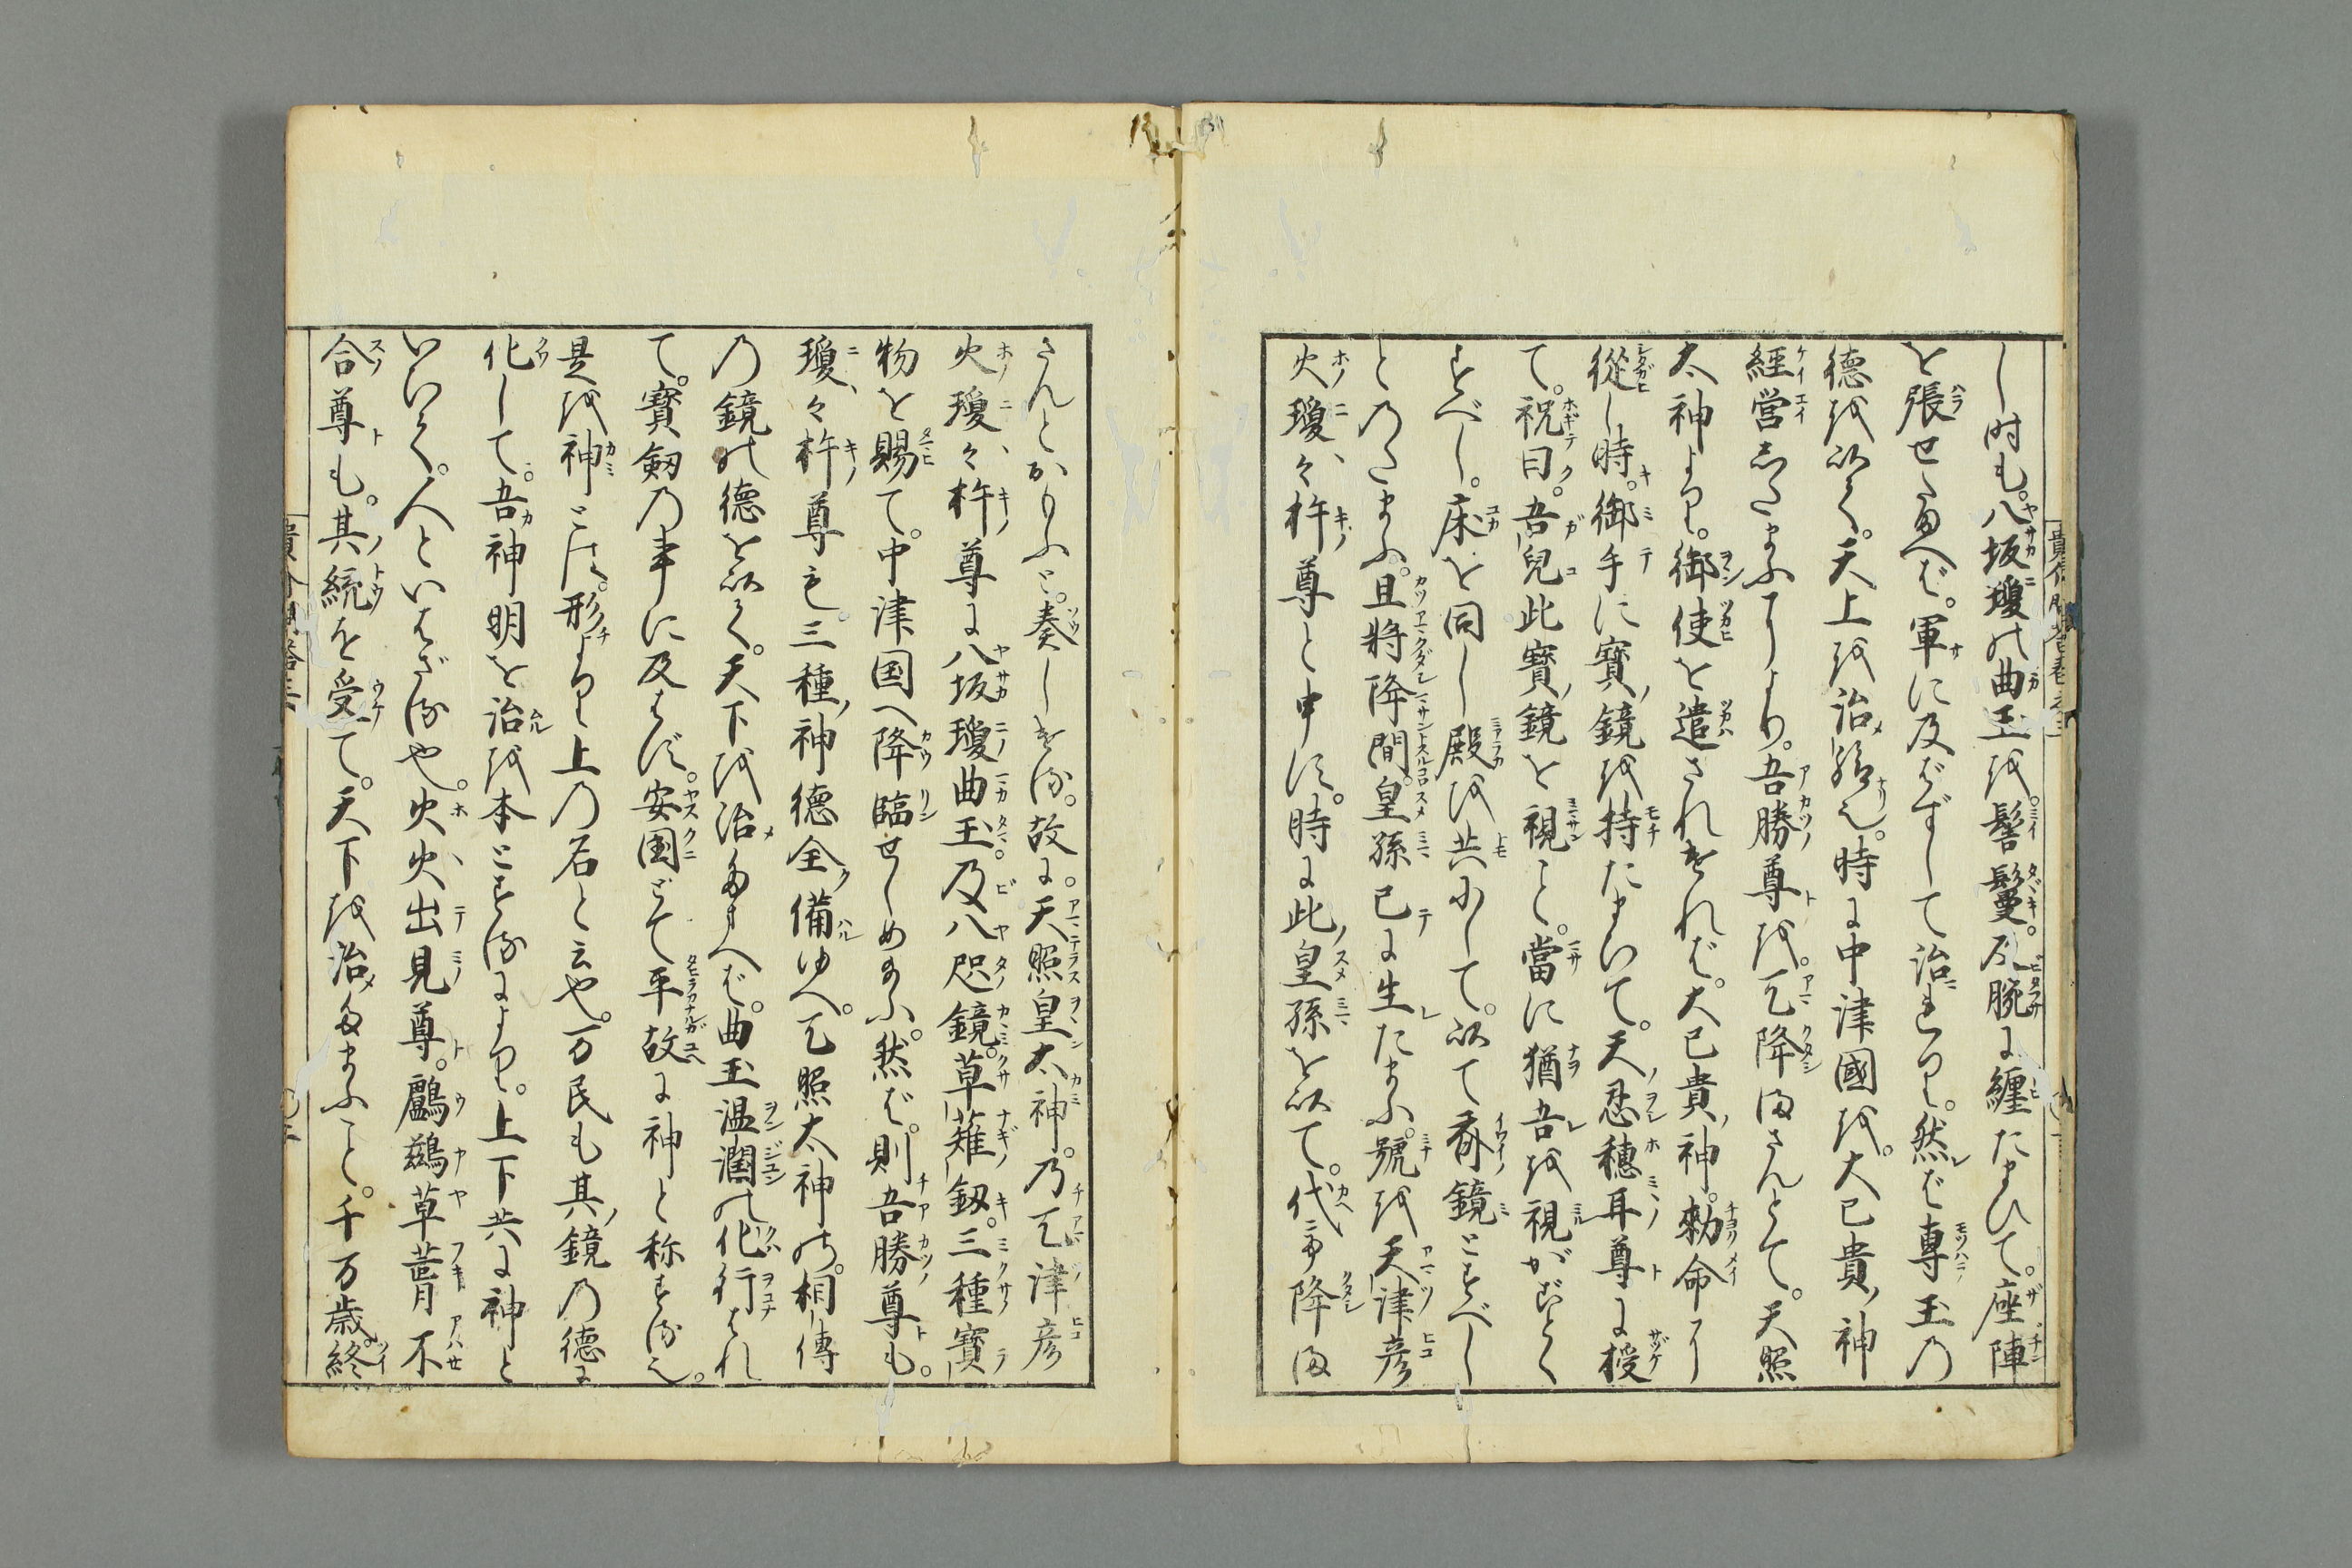 し時も。八坂瓊の曲玉を。髻鬘。及腕に纏たまひて。座陣
を張せたまへば。軍に及ばずして治まれり。然ば専玉の
徳を以て。天上を治給也。時に中津國を。大已貴神
経営したまふてより。吾勝尊を。天降まさんとて。天照
太神より。御使を遣されければ。大已貴神。勅命に
從し時。御手に寶鏡を持たまいて。天忍穂耳尊に授
て。祝曰。吾兒此寶鏡を視こと。當に猶吾を視がごとく
すべし。床を同し殿を共にして。以て斎鏡とすべし
とのたまふ。且将降間。皇孫已に生たまふ。號を天津彦
火瓊々杵尊と申す。時に此皇孫を以て。代て降ま
さんとおもふと。奏しける。故に。天照皇太神。乃天津彦
火瓊々杵尊に八坂瓊曲玉。及八咫鏡。草薙釼。三種寶
物を賜て。中津国へ降臨せしめ給ふ。然ば。則吾勝尊も。
瓊々杵尊も。三種神徳全備ゆへ。天照太神の。相傳
の鏡の徳を以て。天下を治たまへば。曲玉温潤の化行はれ
て。寳剱の事に及はず。安国とて平故に神と称する也。
是を神とは。形より上の名と云也。万民も其鏡の徳に
化して。吾神明を治を本とするにより。上下共に神と
いいて。人といはざる也。火火出見尊。鸕鷀草葺不
合尊も。其統を受て。天下を治たまふこと。千万歳。終